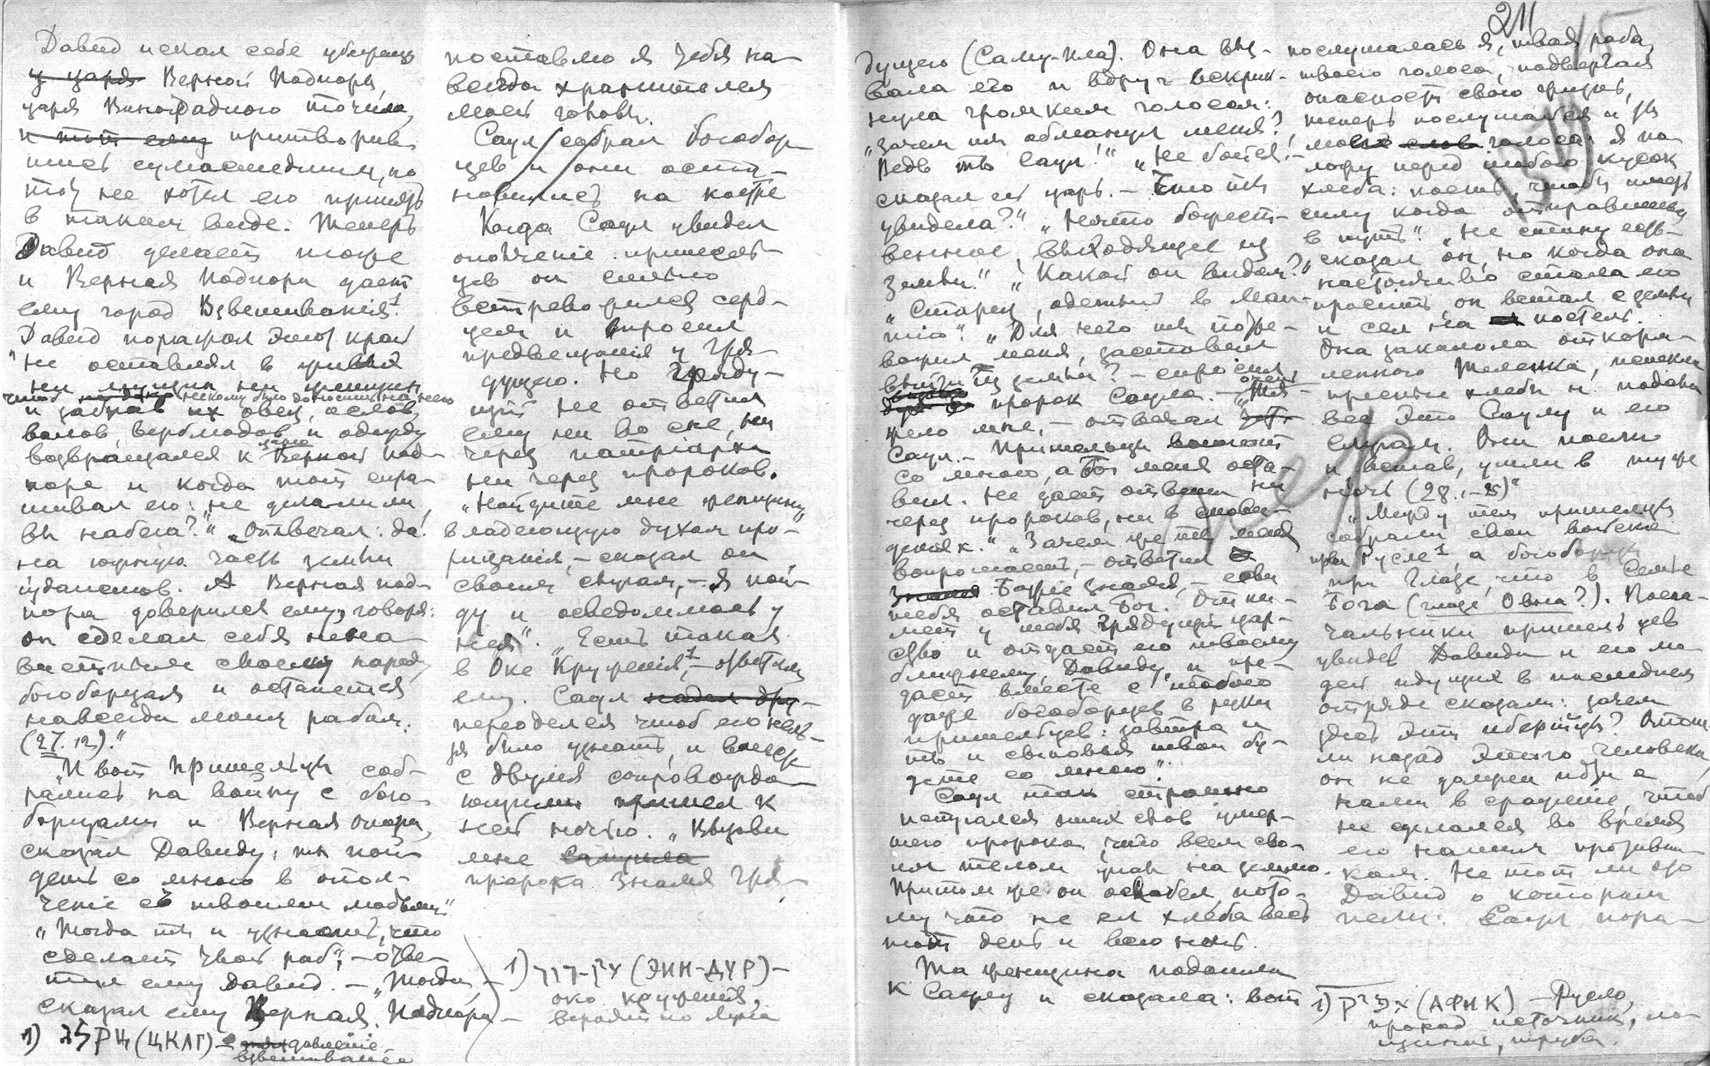 Давид искал себе убежище
у царя Верной Подпоры
царя Виноградного точила,
и тот ему притворив
шись сумасшедшим, но
тот не хотел его принять
в таком виде. Теперь
Давид делает тоже
и Верная Подпора дает
ему город Взвешивания¹
Давид поражал этот край
"не оставлял в живых
ни мущин ни женщин
чтоб некому было доносить на него
и забрав их овец, ослов,
волов, верблюдов и одежду
возвращался к Верной под-
поре и когда тот спра-
шивал его: "не делали ли
вы набега?" "Отвечал: да!
на южную часть земли
иудаистов. А Верная под-
пора доверился ему, говоря:
он сделал себя нена-
вистным своему народу
богоборцам и останется
навсегда моим рабом.
(27. 12)."
"И вот Пришельцы соб-
рались на войну с бого-
борцами и Верная опора
сказал Давиду: ты пой-
дешь со мною в опол-
чение с твоими людьми"
"Тогда ты и узнаешь, что
сделает твой раб", – отве-
тил ему Давид. – "Тогда, –
сказал ему Верная Подпора –
1) (ЦКЛГ) – давление
взвешивание
поставлю я тебя на-
всегда хранителем
моей головы.
Саул собрал богобор-
цев и они оста-
новились на
Когда Саул увидел
ополчение пришель-
цев он сильно
встревожился серд-
цем и спросил
предвещания у Гря-
дущего. Но Гряду-
щий не ответил
ему ни во сне, ни
через патриарха
ни через пророков.
"Найдите мне женщину,
владеющую духом про-
рицания, – сказал он
своим слугам, – я пой-
ду и осведомлюсь у
нея". "Есть такая
в Оке Кружения¹, – ответили
ему. Саул надел дру-
переоделся чтоб его нель-
зя было узнать, и вместе
с двумя сопровожда-
ющими пришел к
ней ночью. "Вызови
мне Самуила
пророка Знамя Гря-
1) (ЭИН-ДУР) –
око кружения,
вероятно луна
211
дущего (Саму-ила). Она выз-
вала его и вдруг вскрик-
нула громким голосом:
"Зачем ты обманул меня?
Ведь ты Саул!" "Не бойся! –
сказал ей царь. – Что ты
увидела?" "Нечто божест-
венное, выходящее из
земли." "Какой он видом?"
"Старец, одетый в ман-
тию". "Для чего ты потре-
вожил меня, заставил
выйти из земли? – спросил
пророк Саула. – "Тя-
жело мне, – отвечал
Саул. – Пришельцы воюют
со мною, а Бог меня оста-
вил. Не дает ответа ни
через пророков, ни в снови-
деньях." "Зачем же ты меня
вопрошаешь, – ответил
Знамя Божие Знамя, – если
тебя оставил Бог. Отни-
мет у тебя Грядущий цар-
ство и отдает его твоему
ближнему, Давиду, и пре-
даст вместе с тобою
даже богоборцев в руки
пришельцев: завтра и
ты и сыновья твои бу-
дете со мною".
Саул так страшно
испугался этих слов умер-
шего пророка, что всем сво-
им телом упал на землю.
Притом же он ослабел, пото-
му что не ел хлеба весь
тот день и всю ночь.
Та женщина подошла
к Саулу и сказала: вот
послушалась я, твоя раба,
твоего голоса, подвергая
опасности свою жизнь,
теперь послушайся и ты
моих слов голоса: я по-
ложу перед тобою кусок
хлеба: поешь, чтобы иметь
силу когда отправишься
в путь". "Не стану есть –
сказал он, но когда она
настойчиво стала его
просить, он встал с земли
и сел на постель.
Она заколола откорм-
ленного теленка, испекла
пресные хлебы и подала
все это Саулу и его
слугам. Они поели
и встав, ушли в ту же
ночь (28. 1–25)"
"Между тем пришельцы
собрали свои войска
при Русле¹, а богоборцы
при Глазе, что в Семье
Бога (глазе Овна?). Воена-
чальники пришельцев
увидев Давида и его лю-
дей идущих в последнем
отряде сказали: зачем
здесь эти иберийцы? Отош-
ли назад этого человека,
он не должен идти с
нами в сражение, чтоб
не сделался во время
его нашим противни-
ком. Не тот ли это
Давид о котором
пели: Саул пора-
1) (АФИК) – Русло,
проход источник, ло-
щина, труба.